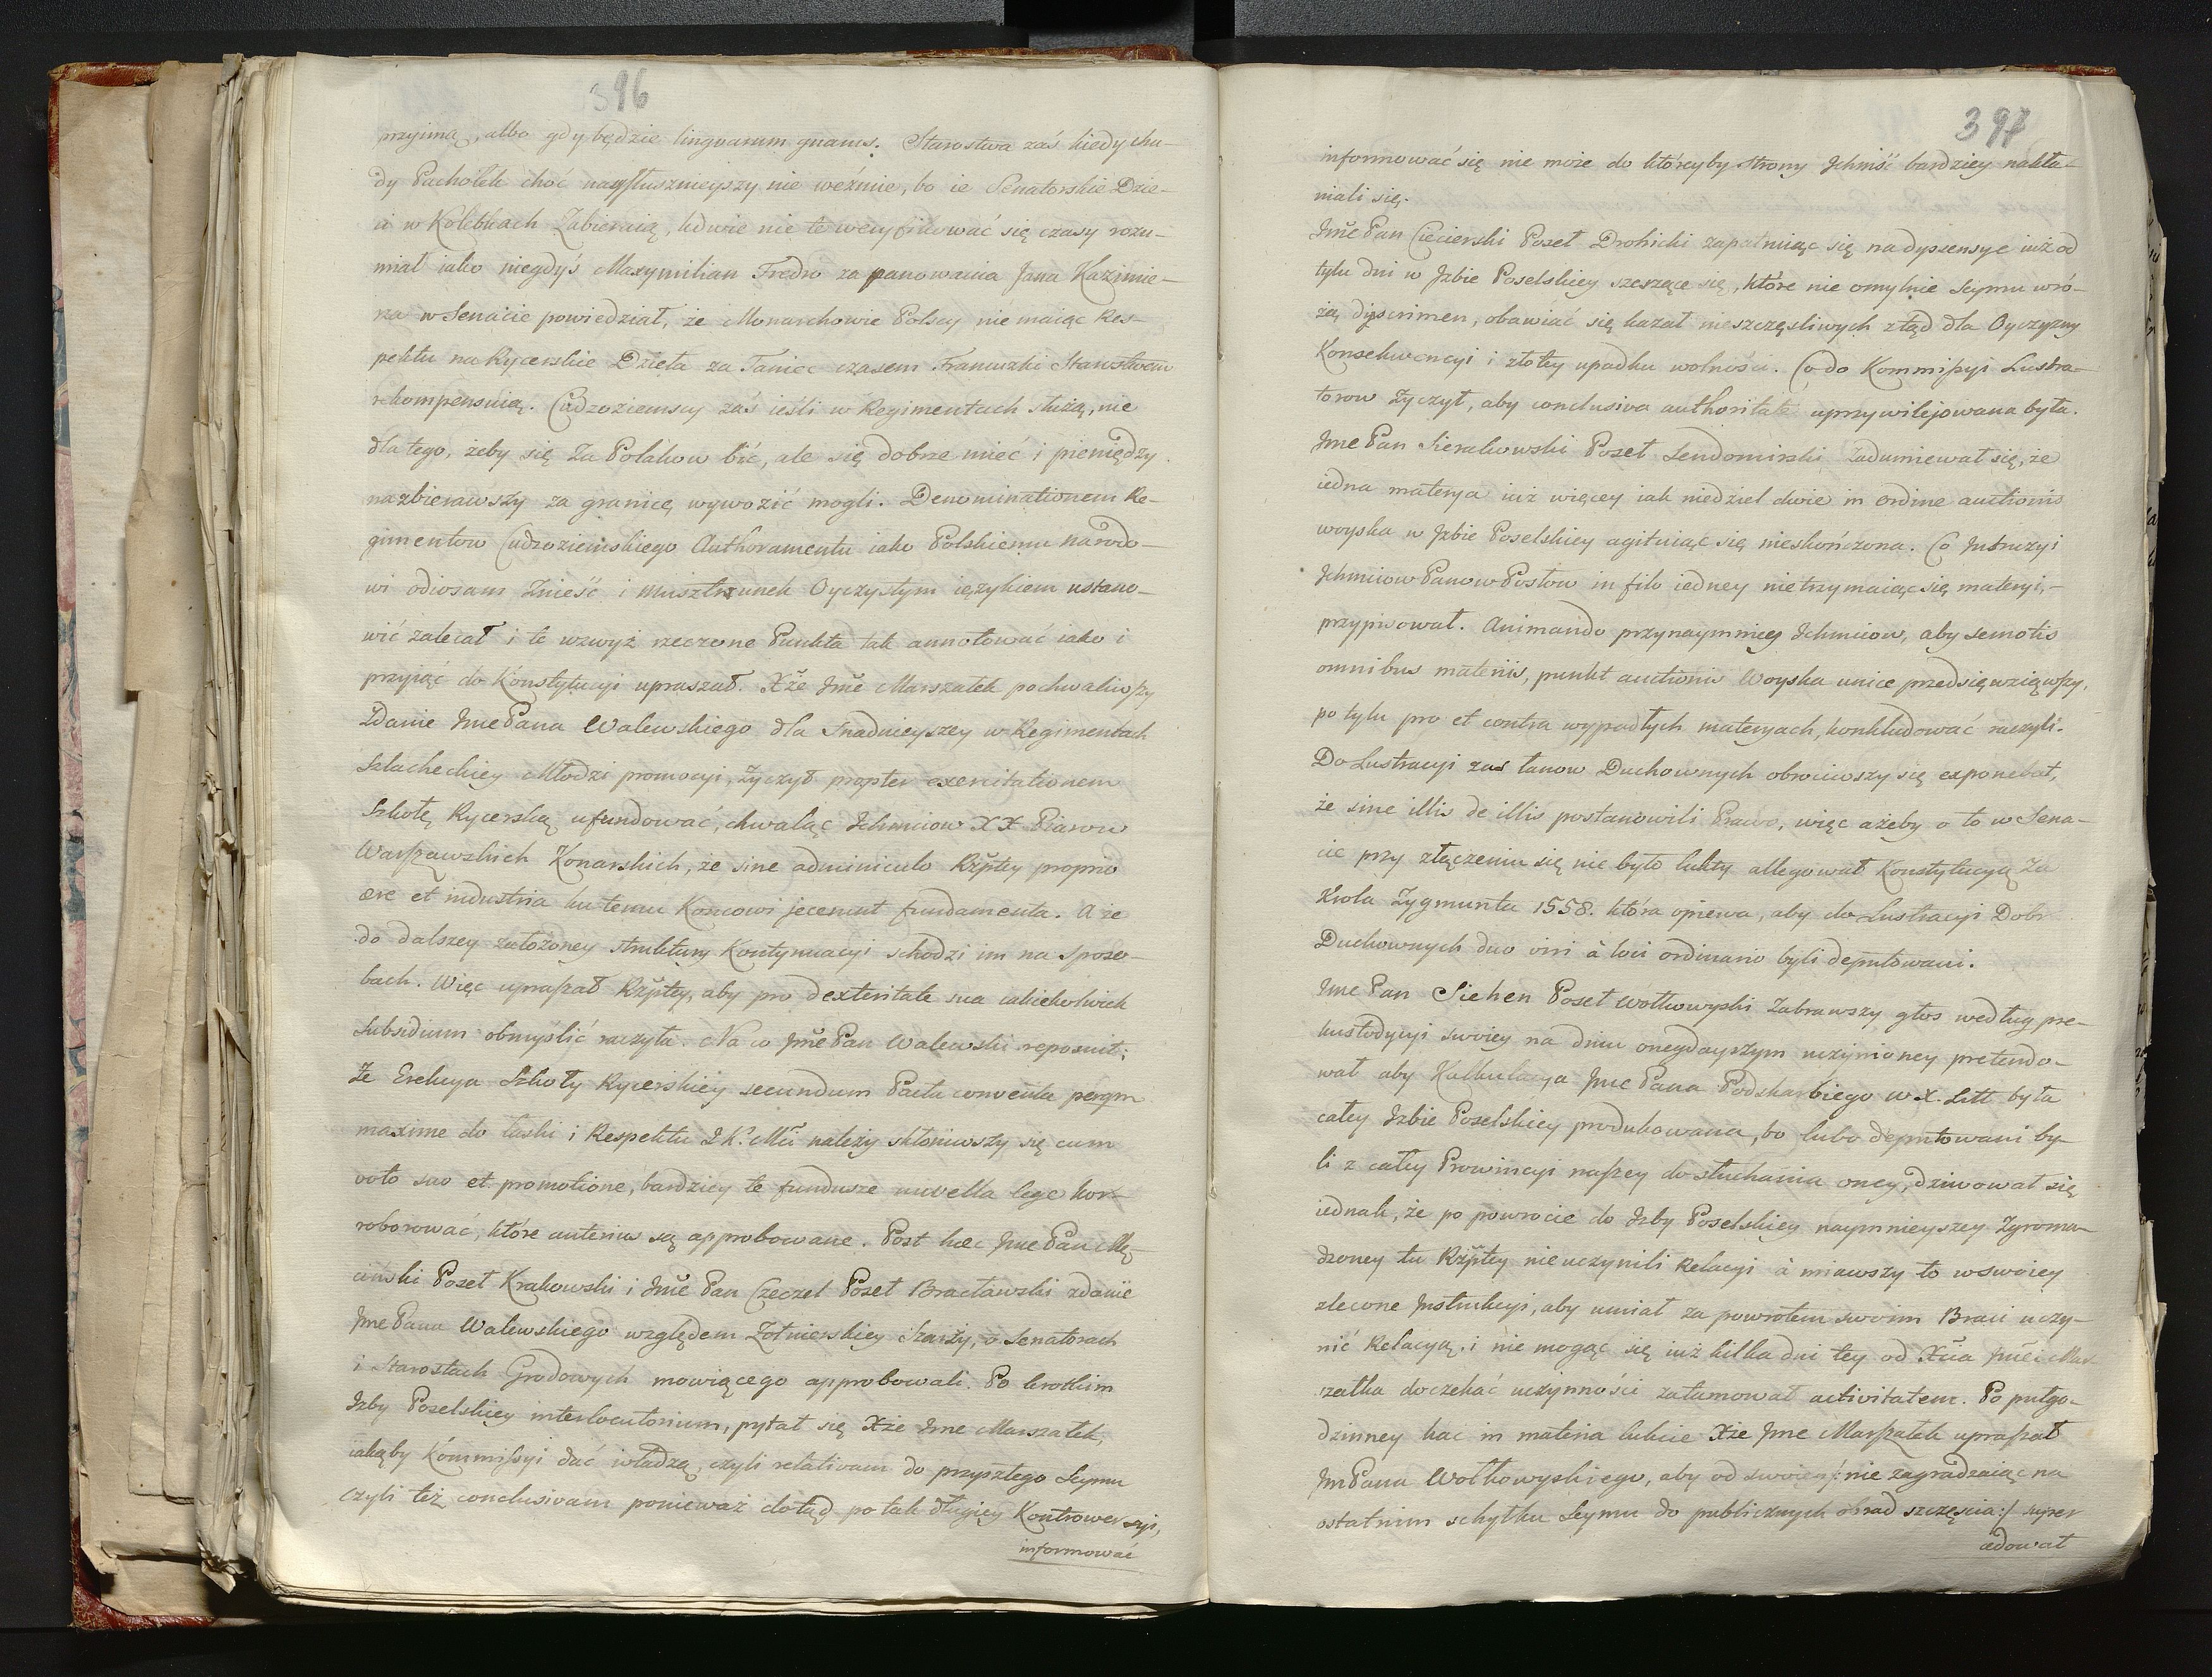 396
przyimą, albo gdy będzie linguarum gnarus. Starostwa zaś kiedy chu-
dy Pachołek choć naysłusznieyszy nie weźmie, bo ie Senatorskie Dzie-
ci w Kolebkach Zabieraią, lubo nie te weryfikować się czasy rozu-
miał iako niegdyś Maxymilian Fredro za panowania Jana Kazimie-
rza w Senacie powiedział, że Monarchowie Polscy nie maiąc Res-
pektu na Rycerskie Dzieła za Taniec czasem Francuzki Starostwem
rekompensuią. Cudzoziemscy zaś ieśli w Regimentach służą, nie
dla tego, żeby się za Polakow bić, ale się dobrze mieć i pieniędzy
nazbierawszy za granicę wywozić mogli. Denominationem Re-
gimentow Cudzoziemskiego Authoramentu iako Polskiemu narodo-
wi odiosam Znieść i Musztrunek Oyczystym ięzykiem ustano-
wić zalecał i te wzwyż rzeczone Punkta tak annotować iako i
przyiąć do Konstytucyi upraszał. Xże Jmć Marszałek pochwaliwszy
Zdanie Jmć Pana Walewskiego dla snadnieyszey w Regimentach
Szlacheckiey Młodzi promocyi, życzył propter exercitationem
Szkołę Rycerską ufundować, chwaląc Jchmciow XX Piarow
Warszawskich Konarskich, że sine adminiculo Rzptey proprio
ære et industria ku temu Koncowi jecerunt fundamenta. A że
do dalszey założoney struktury Kontynuacyi schodzi im na sposo-
bach. Więc upraszał Rzptey, aby pro dexteritate sua iakiekolwiek
Subsidium obmyślić raczyła. Na co Jmć Pan Walewski reposuit;
Że Erekcya Szkoły Rycerskiey secundum Pacta conventa per qm
maxime do łaski i Respektu J K. Mci należy skłoniwszy się cum
voto suo et promotione, bardziey te fundusze nuvella lege kor-
roborować, które anterius są approbowane. Post hæc Jmć Pan Mę-
ciński Poseł Krakowski i Jmć Pan Czeczel Poseł Bracławski zdanie
Jmć Pana Walewskiego względem Zołnierskiey Szarży, o Senatorach
i Starostach Grodowych mowiącego approbowali. Po krotkim
Jzby Poselskiey interlocutorium, pytał się Xże Jmć Marszałek,
iakąby Kommissyi dać władzą, czyli relativam do przyszłego Seymu
czyli też conclusivam ponieważ dotąd po tak długiey Kontrowersyi,
informować
397
informować się nie może do któreyby strony Jchmść bardziey nakła-
niali się.
Jmć Pan Ciecierski Poseł Drohicki zapatruiąc się na dyssensye iuż od
tylu dni w Jzbie Poselskiey szerzące się, które nie omylnie Seymu wró-
żą dyscrimen, obawiać się kazał nieszczęsliwych ztąd dla Oyczyzny
Konsekwencyi i złotey upadku wolności. Co do Kommissyi Lustra-
torow Życzył, aby conclusiva authoritate uprzywilejowana była.
Jmć Pan Sierakowski Poseł Sendomirski zadumiewał się, że
iedna materya iuż więcey iak niedziel dwie in ordine auctionis
woyska w Jzbie Poselskiey agituiąc się nieskończona. Co Jntruzyi
Jchmciow Panow Posłow in filo iedney nie trzymaiąc się materyi,-
przypisował. Animando przynaymniey Jchmciow, aby semotis
omnibus materiis, punkt auctionis Woyska unice przedsięwziąwszy,
po tylu pro et contra wypadłych materyach, konkludować raczyli.
Do Lustracyi zas łanow Duchownych obrociwszy się exponebat,
że sine illis de illis postanowili Prawo, więc ażeby o to w Sena-
cie przy złączeniu się nie było lukty allegował Konstytucyą Za
Krola Zygmunta 1558. która opiewa, aby do Lustracyi Dobr
Duchownych duo viri à loci ordinario byli deputowani.
Jmć Pan Siehen Poseł Wołkowyski Zabrawszy głos według pre-
kustodycyi swoiey na dniu onegdayszym uczynioney pretendo-
wał aby Kalkulacya Jmć Pana Podskarbiego W. X. Litt była
całey Jzbie Poselskiey produkowana, bo lubo deputowani by-
li z całey Prowincyi naszey do słuchania oney, dziwował się
iednak, że po powrocie do Jzby Poselskiey naymnieyszey Zgroma-
dzoney tu Rzptey nie uczynili Relacyi à miawszy to w swoiey
zlecone Jnstrukcyi, aby umiał za powrotem swoim Braci uczy-
nić Relacyą. i nie mogąc się iuż kilka dni tey od Xcia Jmci Mar-
szałka doczekać uczynności zatamował activitatem. Po pułgo-
dzinney hac in materia lukcie Xże Jmć Marszałek upraszał
Jm Pana Wołkowyskiego, aby od swoiey /: nie zagradzaiąc na
ostatnim schyłku Seymu do publicznych obrad szczęscia :/ super
ædował